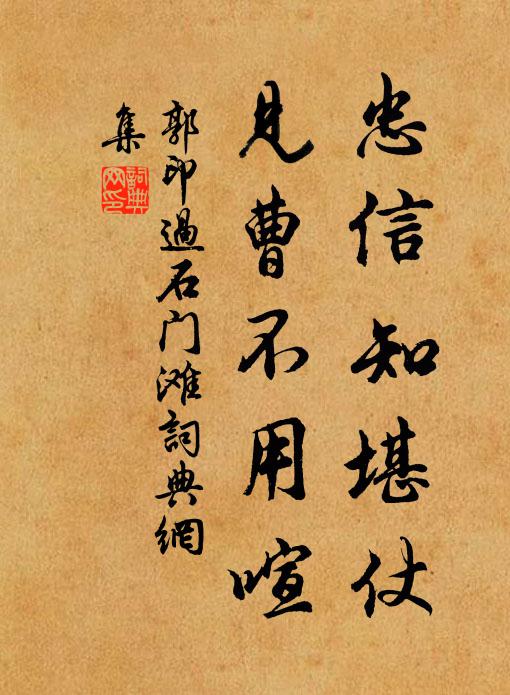 忠信知堪仗
見曹不用喧
郭印過石门滩詞典網
集
詞典网印